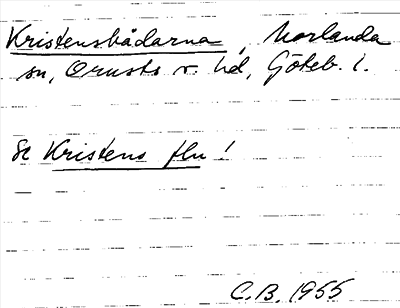 Kristensbådarna, Morlanda
sn, Orusts v. hd, Göteb. l.
Se Kristens flu!
C.B. 1955